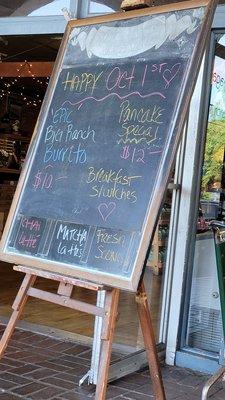 HAPPY Oct 1st
EPIC
Big Ranch
Burrito
$10
Pancake
Special
$12
Breakfast
S/wtches
CHAI
latte
MATCHA
latte
Fresh
Scones